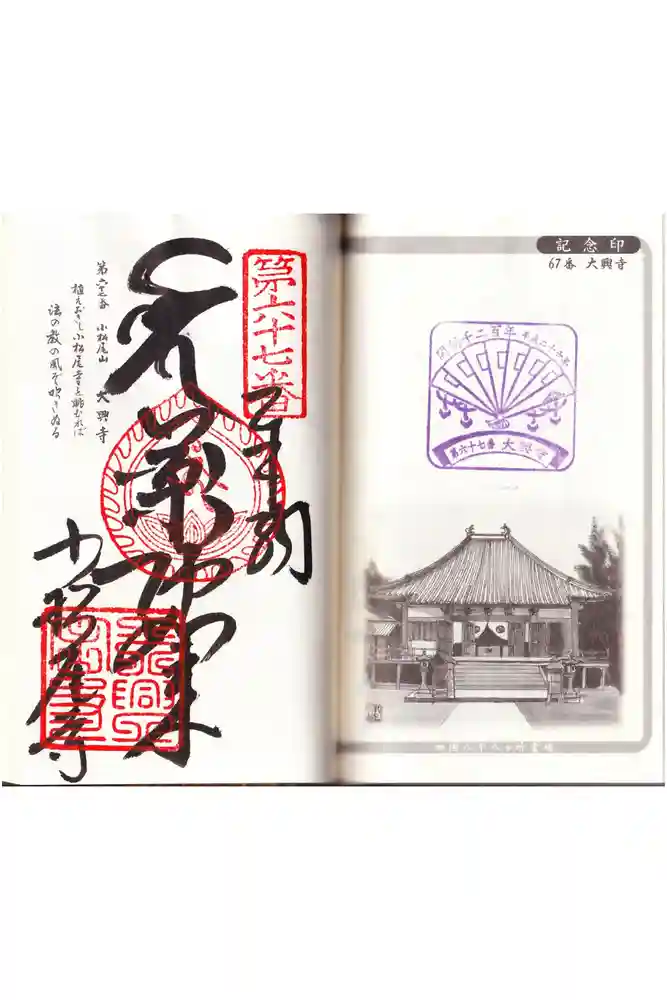 記念印
67番 大興寺
開創千二百年 平成二十六年
第六十七番 大興寺
四国八十八ヶ所霊場
第六十七番
奉納
薬師如来
小松尾寺
第六十七番 小松尾山 大興寺
植えおきし小松尾寺を眺むれば
法の教の風ぞ吹きぬる